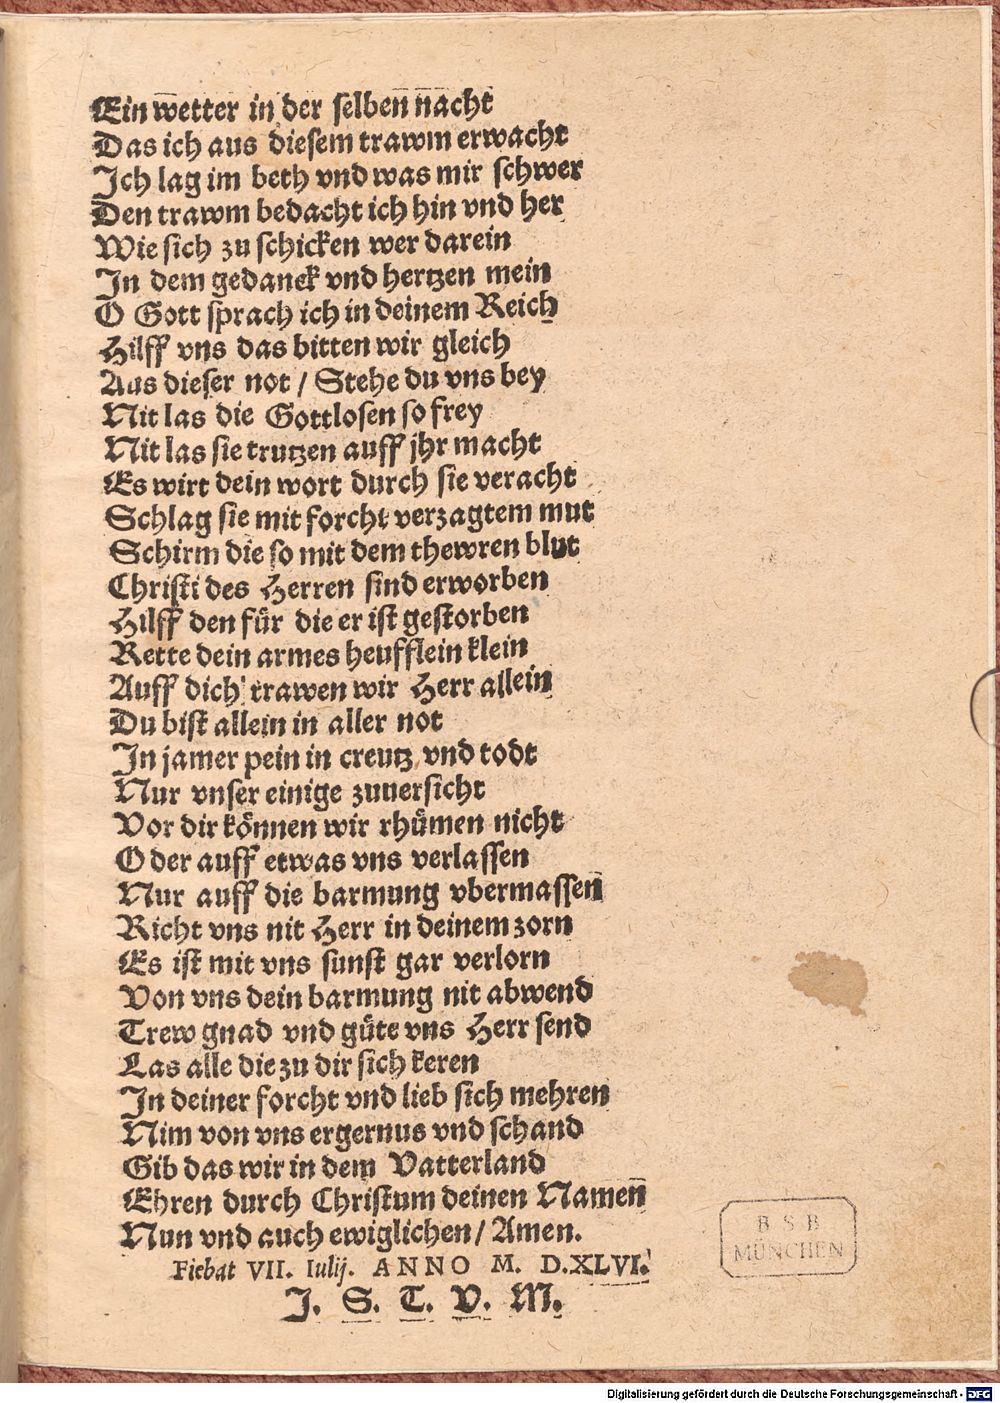 Ein wetter in der selben nacht
Das ich aus diesem trawm erwacht
Ich lag im beth vnd was mir schwer
Den trawm bedacht ich hin vnd her
Wie sich zu schicken wer darein
In dem gedanck vnd hertzen mein
O Gott sprach ich in deinem Reich
Hilff vns das bitten wir gleich
Aus dieser not / Stehe du vns bey
Nit las die Gottlosen so frey
Nit las sie trutzen auff jhr macht
Es wirt dein wort durch sie veracht
Schlag sie mit forcht verzagtem mut
Schirm die so mit dem thewren blut
Christi des Herren sind erworben
Hilff den für die er ist gestorben
Rette dein armes heufflein klein
Auff dich trawen wir Herr allein
Du bist allein in aller not
In jamer pein in creutz vnd todt
Nur vnser einige zuuersicht
Vor dir können wir rhümen nicht
Oder auff etwas vns verlassen
Nur auff die barmung vbermassen
Richt vns nit Herr in deinem zorn
Es ist mit vns sunst gar verlorn
Von vns dein barmung nit abwend
Trew gnad vnd güte vns Herr send
Las alle die zu dir sich keren
In deiner forcht vnd lieb sich mehren
Nim von vns ergernus vnd schand
Gib das wir in dem Vatterland
Ehren durch Christum deinen Namen
Nun vnd auch ewiglichen / Amen.
Fiebat VII. Iulij. ANNO M. D.XLVI.
J. S. T. V. M.
B S B
MÜNCHEN
Digitalisierung gefördert durch die Deutsche Forschungsgemeinschaft - DFG